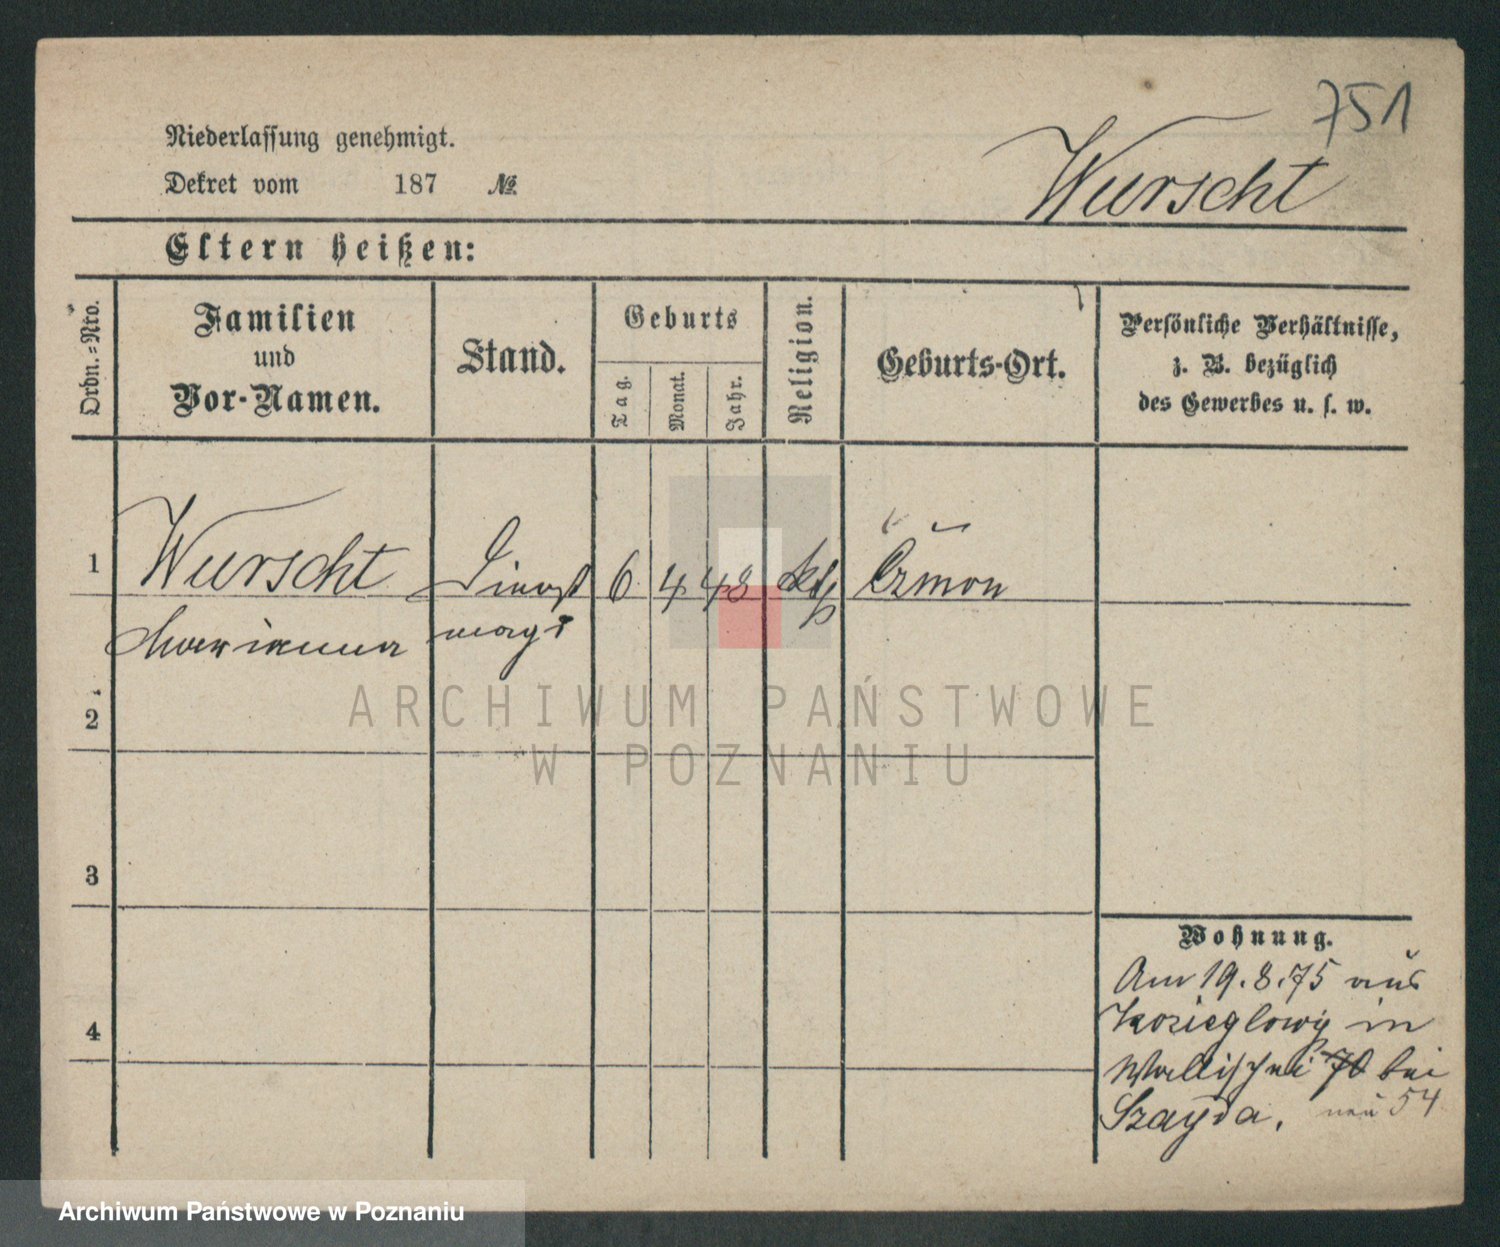 751
Niederlassung genehmigt.
Dekret vom 187 №
Wurscht
Eltern heißen:
Ordn.=Nro.
Familien
und
Vor-Namen.
Stand.
Geburts
Tag.
Monat.
Jahr.
Religion.
Geburts-Ort.
Persönliche Verhältnisse,
z. B. bezüglich
des Gewerbes u. s. w.
1 Wurscht Dienst 6 4 48 kth
Marianna magd
2
3
4
ARCHIWUM PAŃSTWOWE
W POZNANIU
Wohnung.
Am 19.8.75 aus
Kozieglowy in
Wallischei 70 bei
Szayda. neu 54
Archiwum Państwowe w Poznaniu